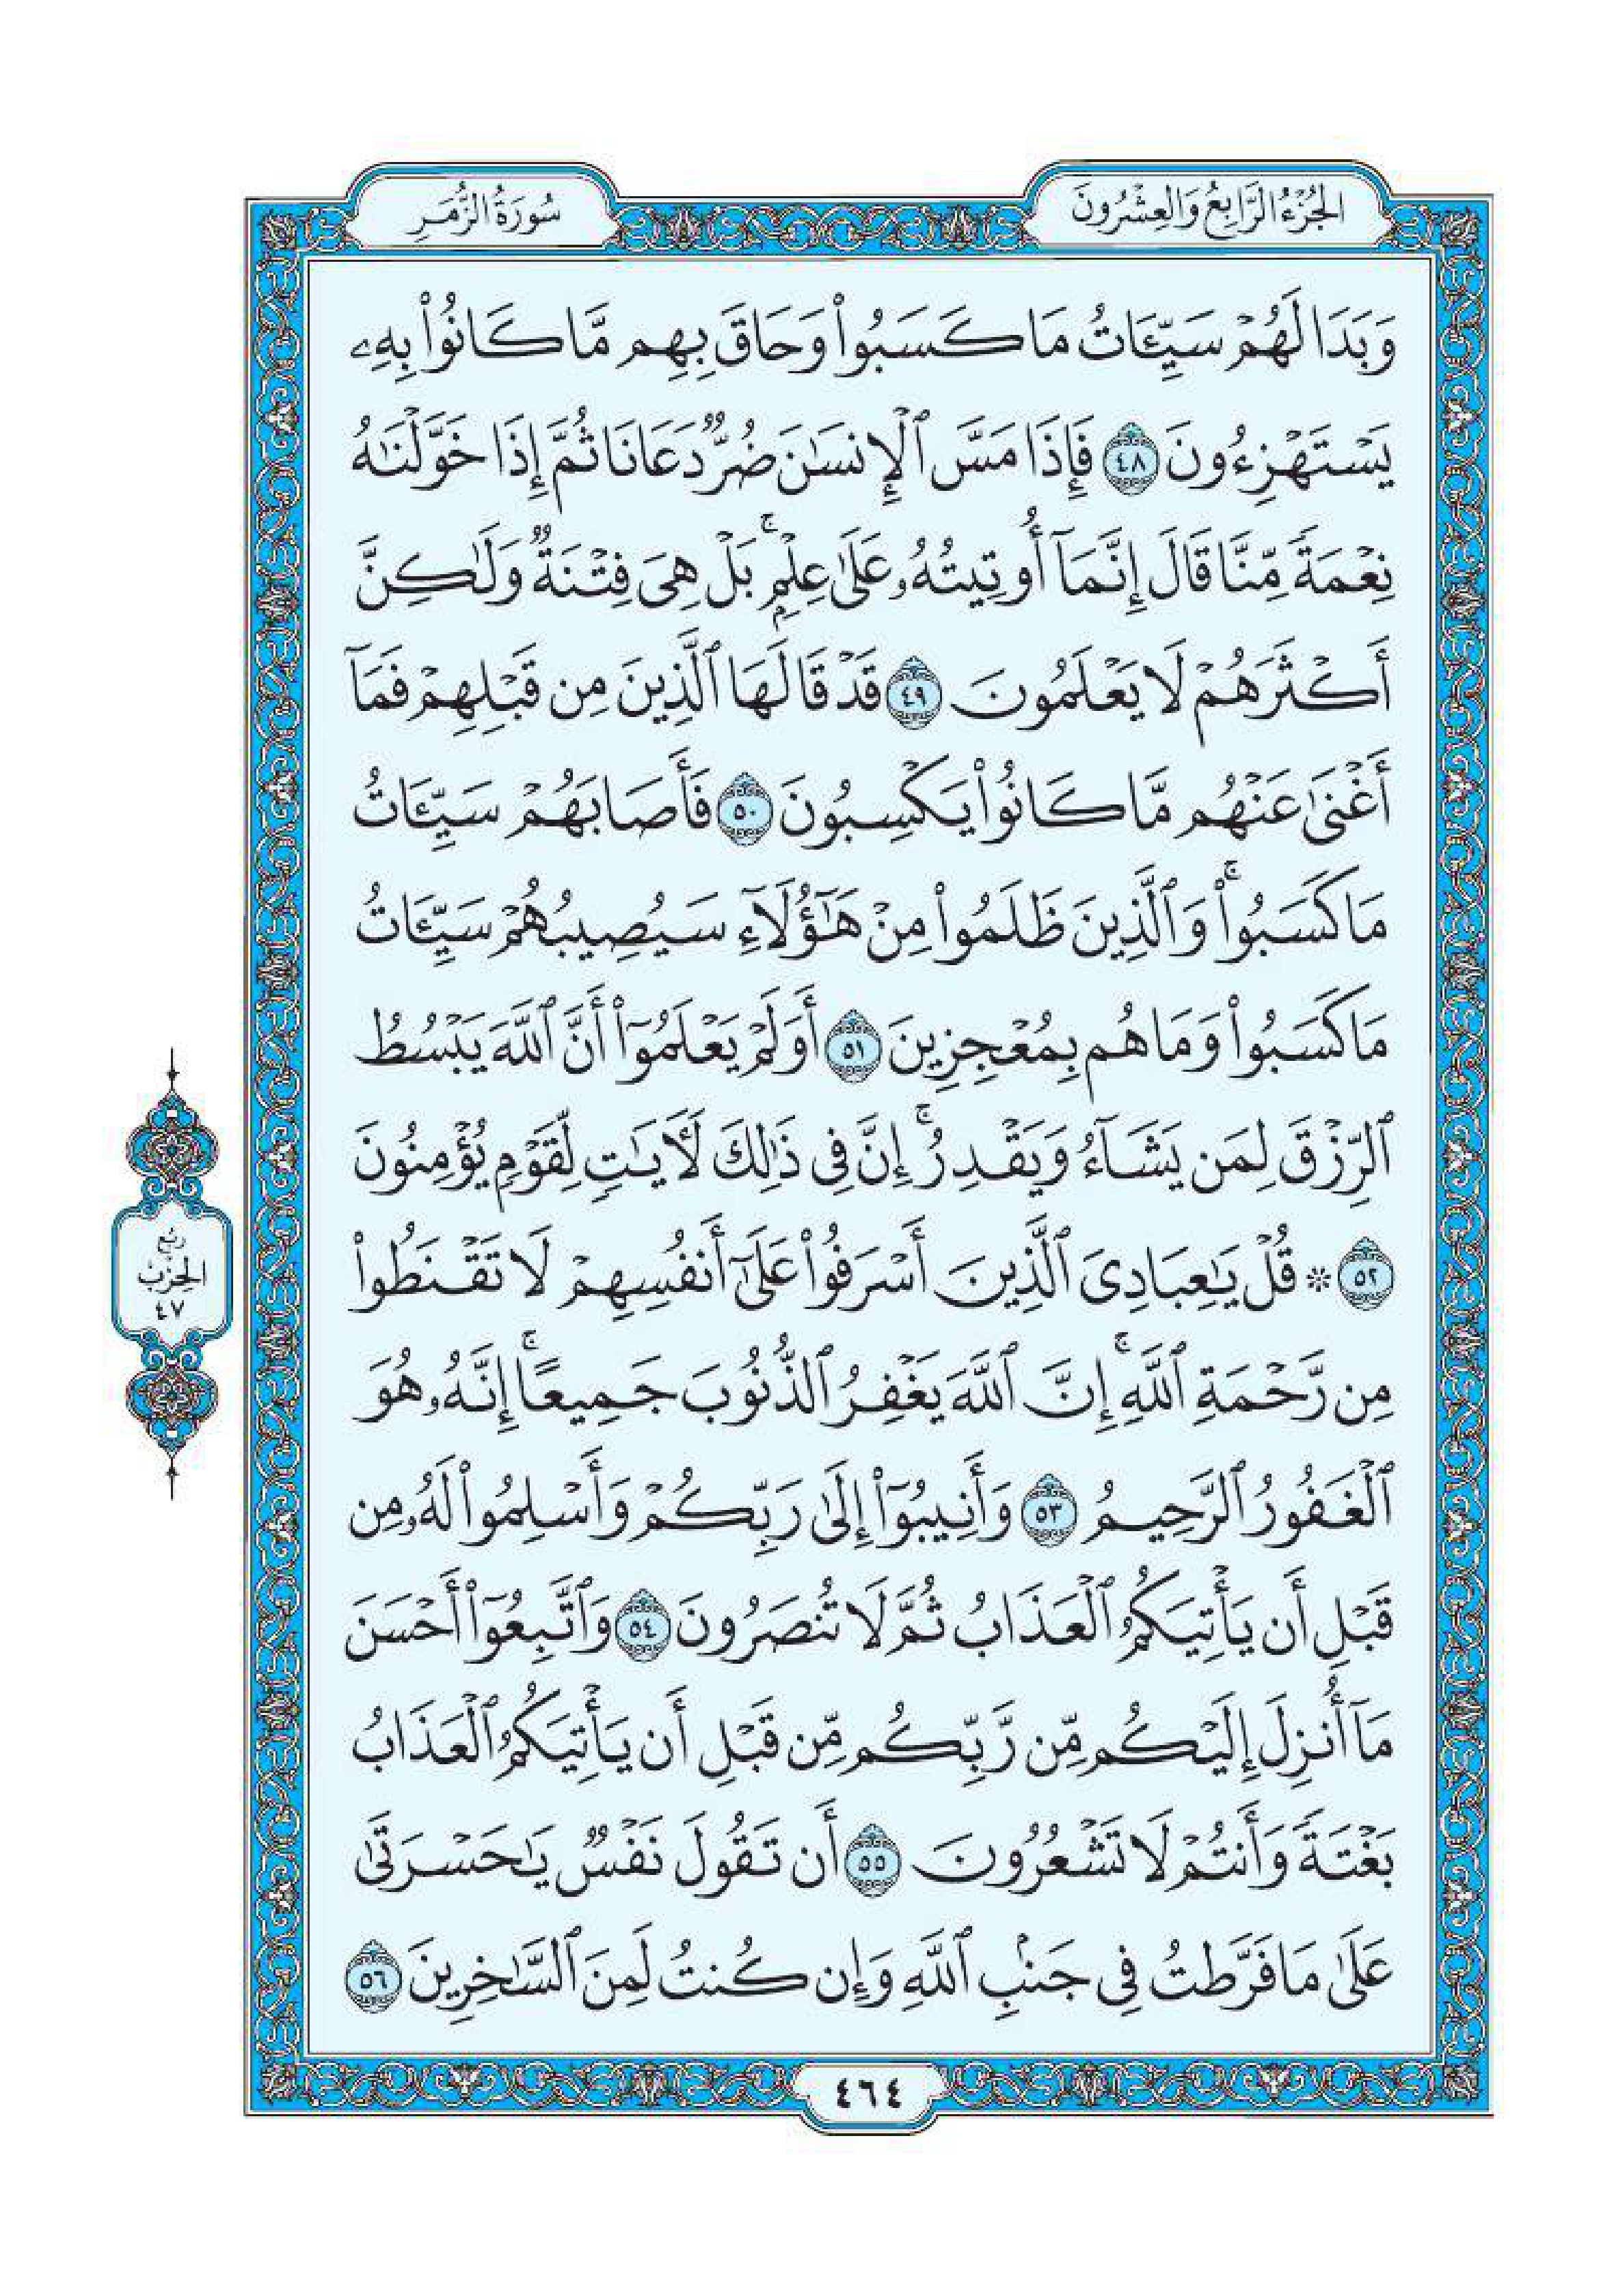 الجُزْءُ الرَّابِعُ وَالعِشْرُونَ
سُورَةُ الزُّمَرِ
وَبَدَا لَهُمْ سَيِّـَٔاتُ مَا كَسَبُوا۟ وَحَاقَ بِهِم مَّا كَانُوا۟ بِهِۦ
يَسْتَهْزِءُونَ ٤٨ فَإِذَا مَسَّ ٱلْإِنسَـٰنَ ضُرٌّ دَعَانَا ثُمَّ إِذَا خَوَّلْنَـٰهُ
نِعْمَةً مِّنَّا قَالَ إِنَّمَآ أُوتِيتُهُۥ عَلَىٰ عِلْمٍۭ ۚ بَلْ هِىَ فِتْنَةٌ وَلَـٰكِنَّ
أَكْثَرَهُمْ لَا يَعْلَمُونَ ٤٩ قَدْ قَالَهَا ٱلَّذِينَ مِن قَبْلِهِمْ فَمَآ
أَغْنَىٰ عَنْهُم مَّا كَانُوا۟ يَكْسِبُونَ ٥٠ فَأَصَابَهُمْ سَيِّـَٔاتُ
مَا كَسَبُوا۟ ۚ وَٱلَّذِينَ ظَلَمُوا۟ مِنْ هَـٰٓؤُلَآءِ سَيُصِيبُهُمْ سَيِّـَٔاتُ
مَا كَسَبُوا۟ وَمَا هُم بِمُعْجِزِينَ ٥١ أَوَلَمْ يَعْلَمُوٓا۟ أَنَّ ٱللَّهَ يَبْسُطُ
ٱلرِّزْقَ لِمَن يَشَآءُ وَيَقْدِرُ ۚ إِنَّ فِى ذَٰلِكَ لَـَٔايَـٰتٍ لِّقَوْمٍ يُؤْمِنُونَ
٥٢ ۞ قُلْ يَـٰعِبَادِىَ ٱلَّذِينَ أَسْرَفُوا۟ عَلَىٰٓ أَنفُسِهِمْ لَا تَقْنَطُوا۟
مِن رَّحْمَةِ ٱللَّهِ ۚ إِنَّ ٱللَّهَ يَغْفِرُ ٱلذُّنُوبَ جَمِيعًا ۚ إِنَّهُۥ هُوَ
ٱلْغَفُورُ ٱلرَّحِيمُ ٥٣ وَأَنِيبُوٓا۟ إِلَىٰ رَبِّكُمْ وَأَسْلِمُوا۟ لَهُۥ مِن
قَبْلِ أَن يَأْتِيَكُمُ ٱلْعَذَابُ ثُمَّ لَا تُنصَرُونَ ٥٤ وَٱتَّبِعُوٓا۟ أَحْسَنَ
مَآ أُنزِلَ إِلَيْكُم مِّن رَّبِّكُم مِّن قَبْلِ أَن يَأْتِيَكُمُ ٱلْعَذَابُ
بَغْتَةً وَأَنتُمْ لَا تَشْعُرُونَ ٥٥ أَن تَقُولَ نَفْسٌ يَـٰحَسْرَتَىٰ
عَلَىٰ مَا فَرَّطتُ فِى جَنۢبِ ٱللَّهِ وَإِن كُنتُ لَمِنَ ٱلسَّـٰخِرِينَ ٥٦
رُبْعُ
الحِزْبِ
٤٧
٤٦٤